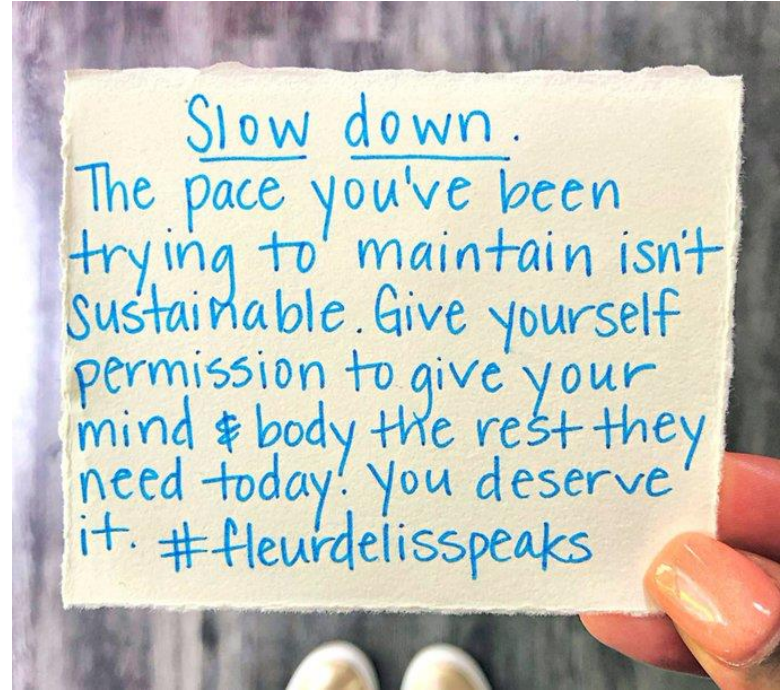 Slow down.
The pace you've been
trying to maintain isn't
sustainable. Give yourself
permission to give your
mind & body the rest they
need today. You deserve
it. #fleurdelisspeaks